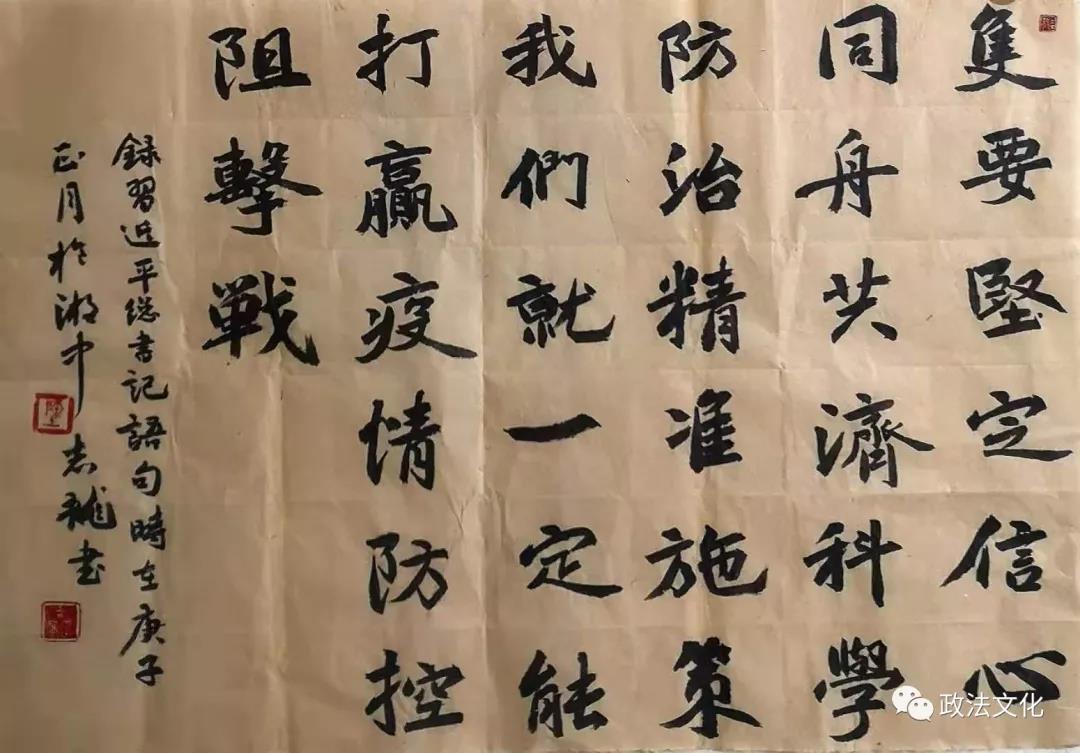 隻要堅定信心
同舟共濟科學
防治精准施策
我們就一定能
打贏疫情防控
阻擊戰
録習近平総書記語句時在庚子
正月於湘中
志龍书
政法文化